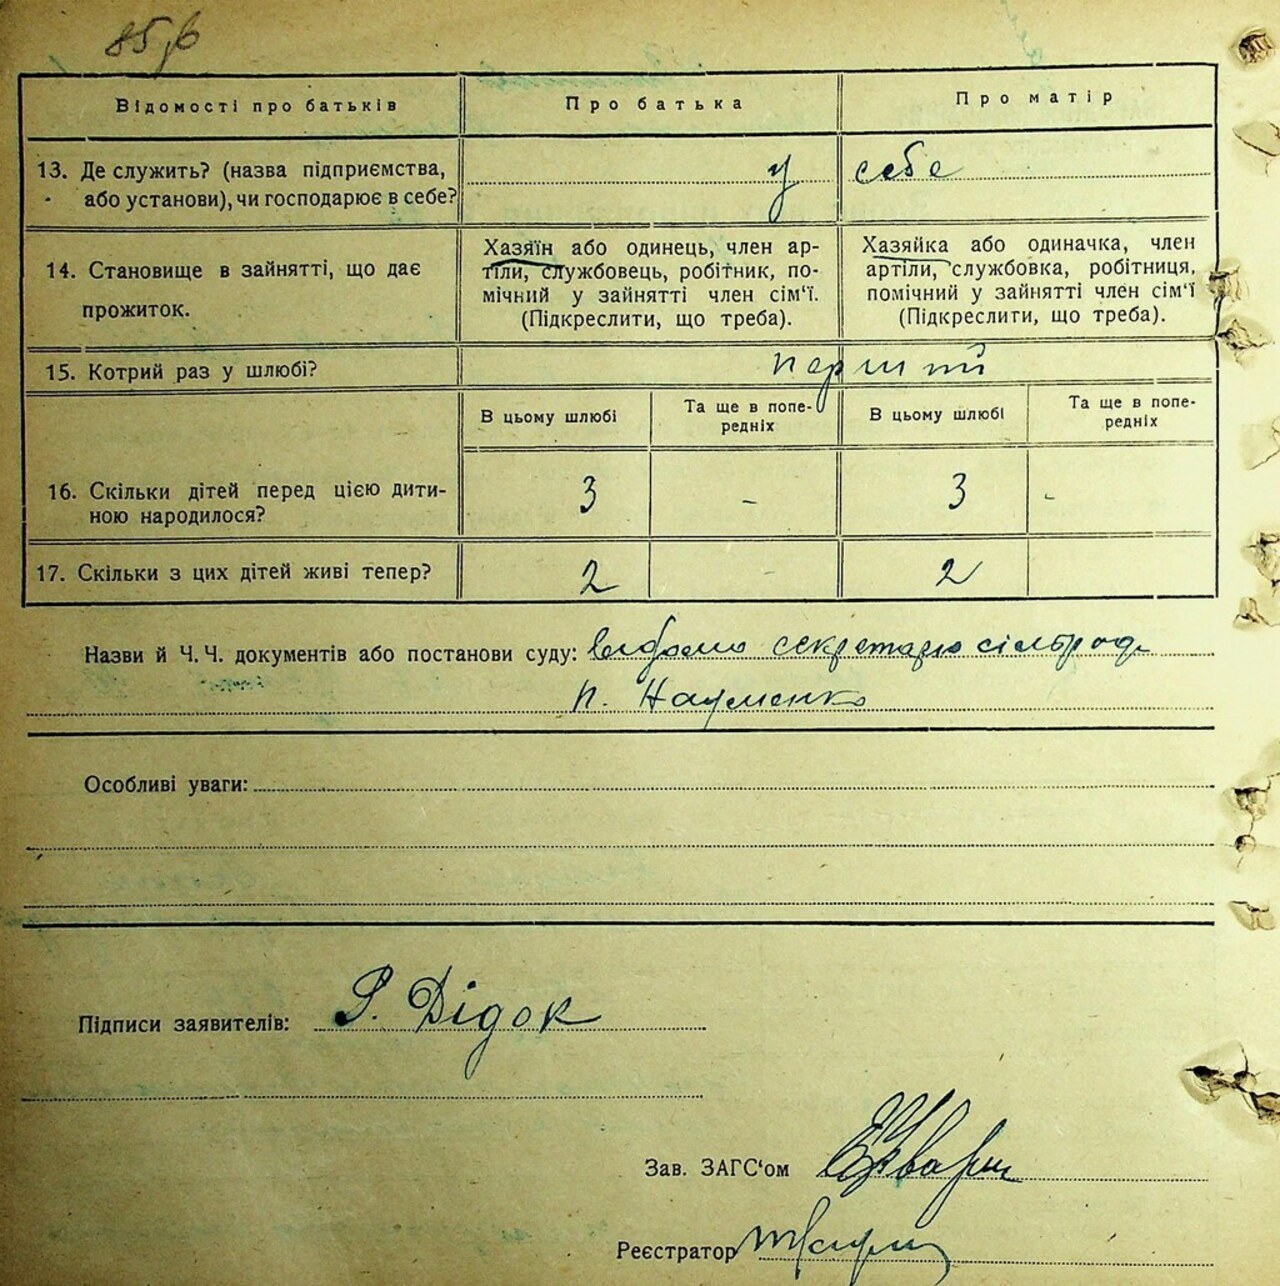 85 б
Відомості про батьків Про батька Про матір
13. Де служить? (назва підприємства, у себе
або установи), чи господарює в себе?
14. Становище в зайнятті, що дає
прожиток.
Хазяїн або одинець, член ар-
тіли, службовець, робітник, по-
мічний у зайнятті член сім‘ї.
(Підкреслити, що треба).
Хазяйка або одиначка, член
артіли, службовка, робітниця,
помічний у зайнятті член сім‘ї
(Підкреслити, що треба).
15. Котрий раз у шлюбі? перший
В цьому шлюбі Та ще в попе-
редніх
В цьому шлюбі Та ще в попе-
редніх
16. Скільки дітей перед цією дити-
ною народилося? 3 - 3 -
17. Скільки з цих дітей живі тепер? 2 - 2
Назви й Ч. Ч. документів або постанови суду: секретарю сільрад
п. Науменко
Особливі уваги:
Підписи заявителів: Дідок
Зав. ЗАГС‘ом
Реєстратор